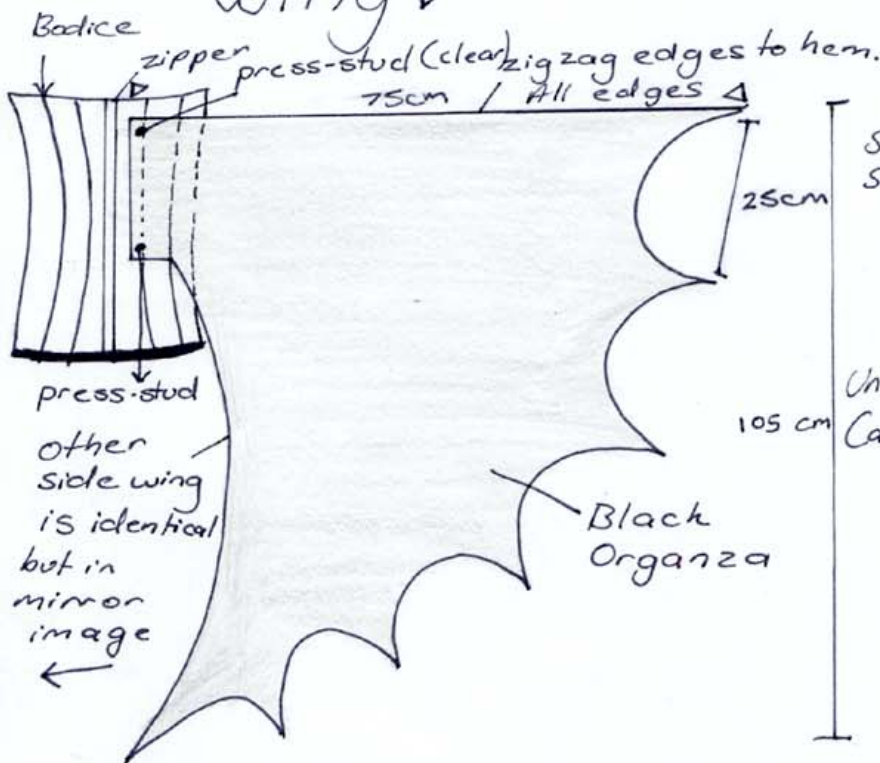 wing
Bodice
zipper
press-stud (clear)
zigzag edges to hem.
75cm
All edges
25cm
105 cm
press-stud
other
side wing
is identical
but in
mirror
image
Black
Organza